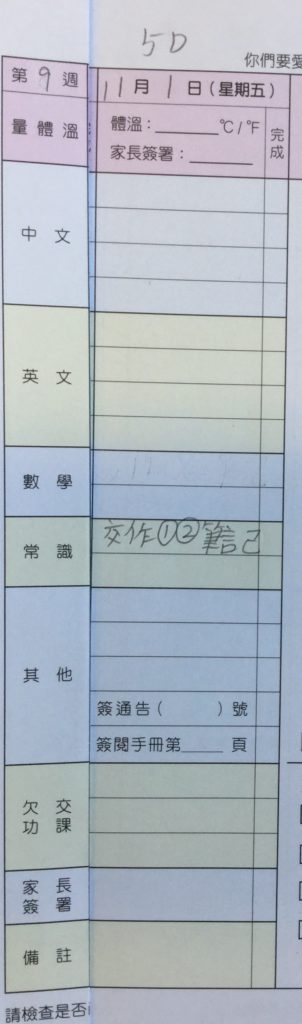 5D
你們要愛
第9週
11月1日(星期五)
量體溫
體溫：______℃/℉
家長簽署：______
完成
中文
英文
數學
常識
交作①②筆記
其他
簽通告( )號
簽閱手冊第____頁
欠交功課
家長簽署
備註
請檢查是否